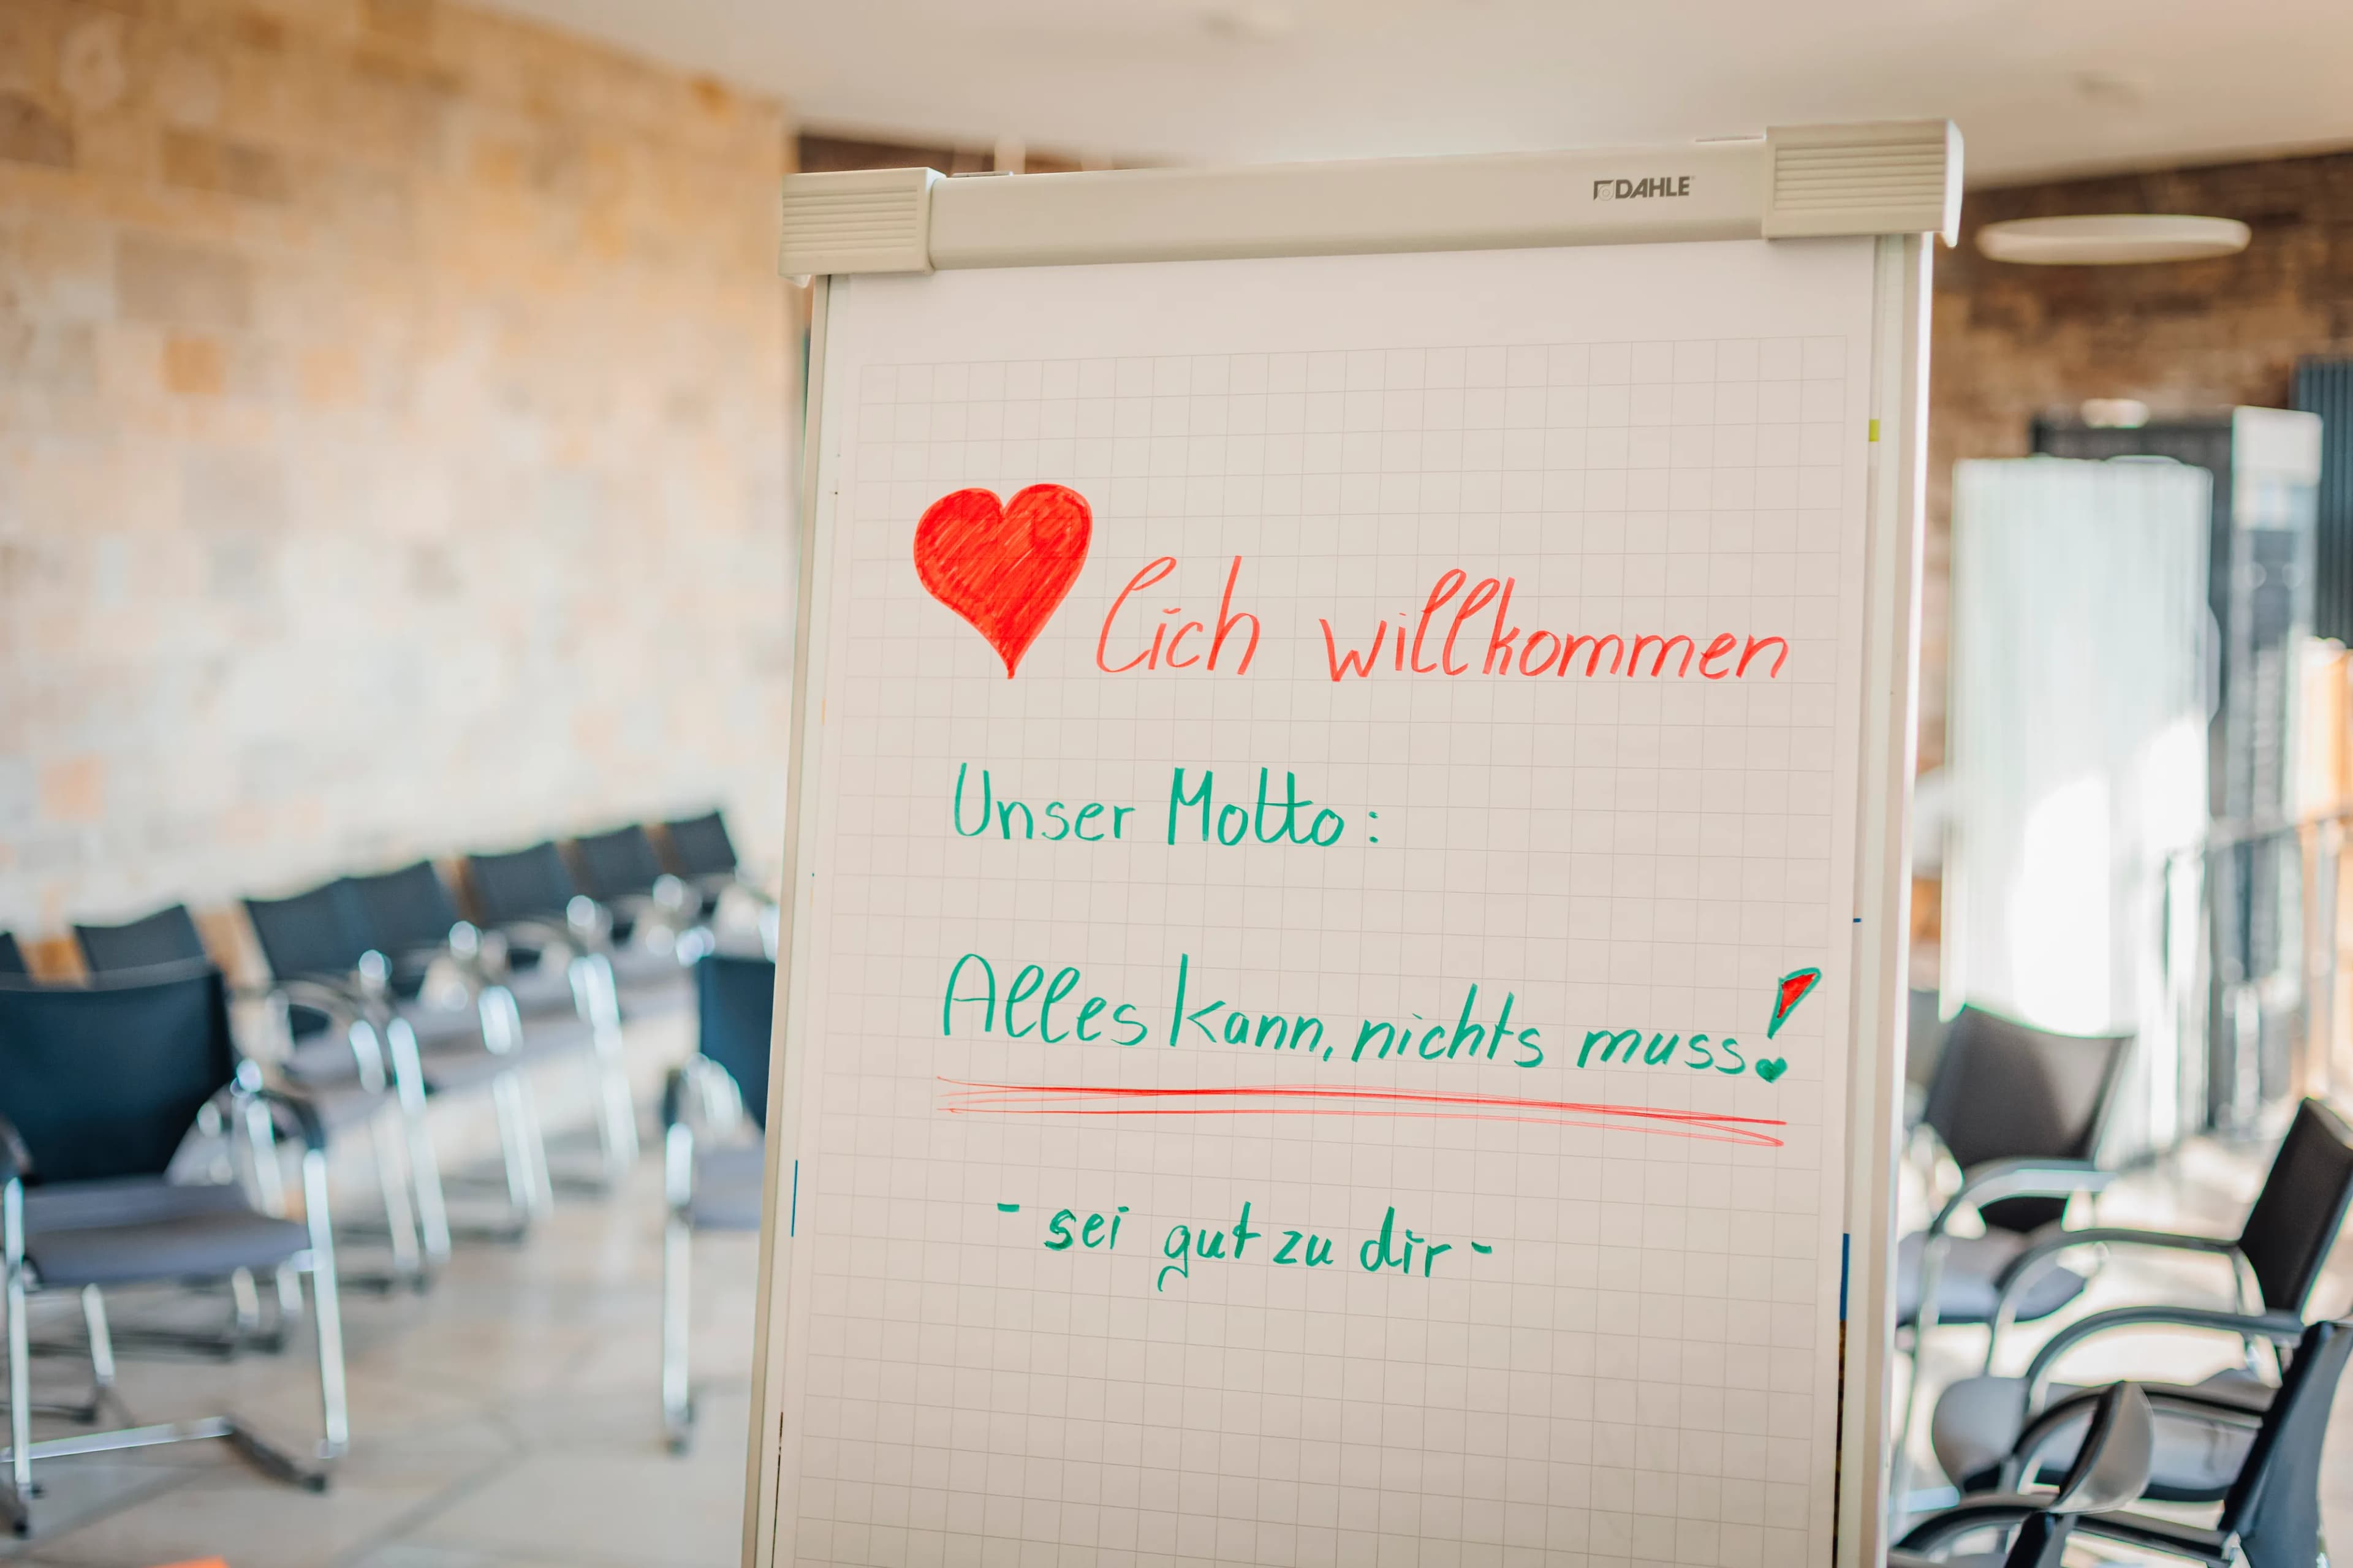 DAHLE
❤lich willkommen
Unser Motto:
Alles kann, nichts muss!
- sei gut zu dir -